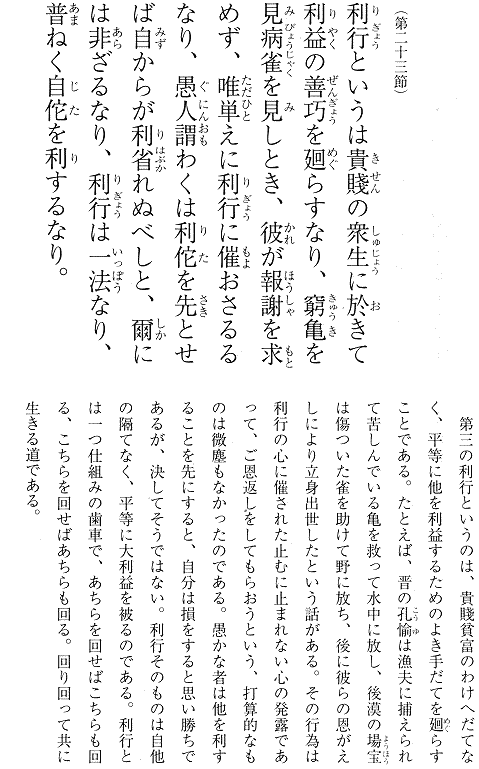 （第二十三節）
利行というは貴賤の衆生に於きて
利益の善巧を廻らすなり、窮亀を
見病雀を見しとき、彼が報謝を求
めず、唯単えに利行に催おさるる
なり、愚人謂わくは利佗を先とせ
ば自からが利省れぬべしと、爾に
は非ざるなり、利行は一法なり、
普ねく自佗を利するなり。
第三の利行というのは、貴賤貧富のわけへだてな
く、平等に他を利益するためのよき手だてを廻らす
ことである。たとえば、晋の孔愉は漁夫に捕えられ
て苦しんでいる亀を救って水中に放し、後漠の場宝
は傷ついた雀を助けて野に放ち、後に彼らの恩がえ
しにより立身出世したという話がある。その行為は
利行の心に催された止むに止まれない心の発露であ
って、ご恩返しをしてもらおうという、打算的なも
のは微塵もなかったのである。愚かな者は他を利す
ることを先にすると、自分は損をすると思い勝ちで
あるが、決してそうではない。利行そのものは自他
の隔てなく、平等に大利益を被るのである。利行と
は一つ仕組みの歯車で、あちらを回せばこちらも回
る、こちらを回せばあちらも回る。回り回って共に
生きる道である。